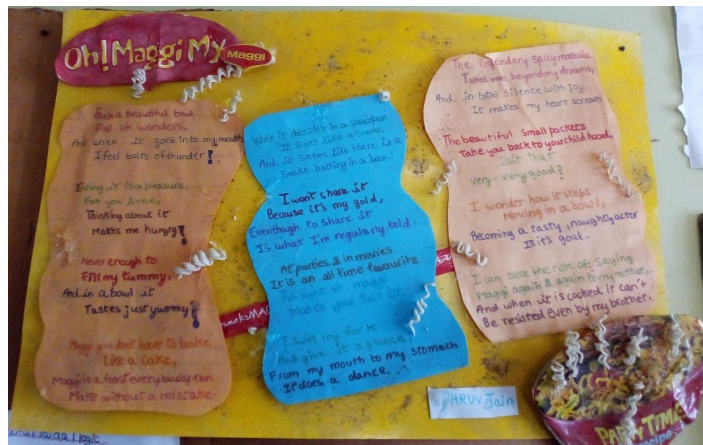 Oh! Maggi My Maggi
Such a beautiful bowl
Full of wonders,
And when it goes into my mouth
I feel bolts of thunder!
Eating it is a pleasure,
For you & me,
Thinking about it
Makes me hungry!
Never enough to
Fill my tummy,
And in a bowl it
Tastes just yummy!
Maggi you don't have to bake
Like a cake,
Maggi is a feast every body can
Make without a mistake.
When it dazzles in a saucepan
It looks like a snake,
And it seems like there is a
Snake bathing in a lake.
I won't share it
Because it's my gold,
Eventhough to share it
Is what I'm regularly told.
At parties & in movies
It is an all time favourite
The sight of maggi
Makes your face lit.
I swirl my fork
And give it a glance,
From my mouth to my stomach
It does a dance...
The legendary spicy masala
Takes me beyond my dreams,
And in total silence with joy.
It makes my heart scream
The beautiful small packets
Take you back to your childhood,
Isn't that
very-very good?
I wonder how it stops
Moving in a bowl,
Becoming a tasty, naughty actor
Is it's goal.
I can take the risk of saying
Maggi again & again to my mother,
And when it is cooked it can't
Be resisted even by my brother.
DHRUV Jain
PARTY TIME